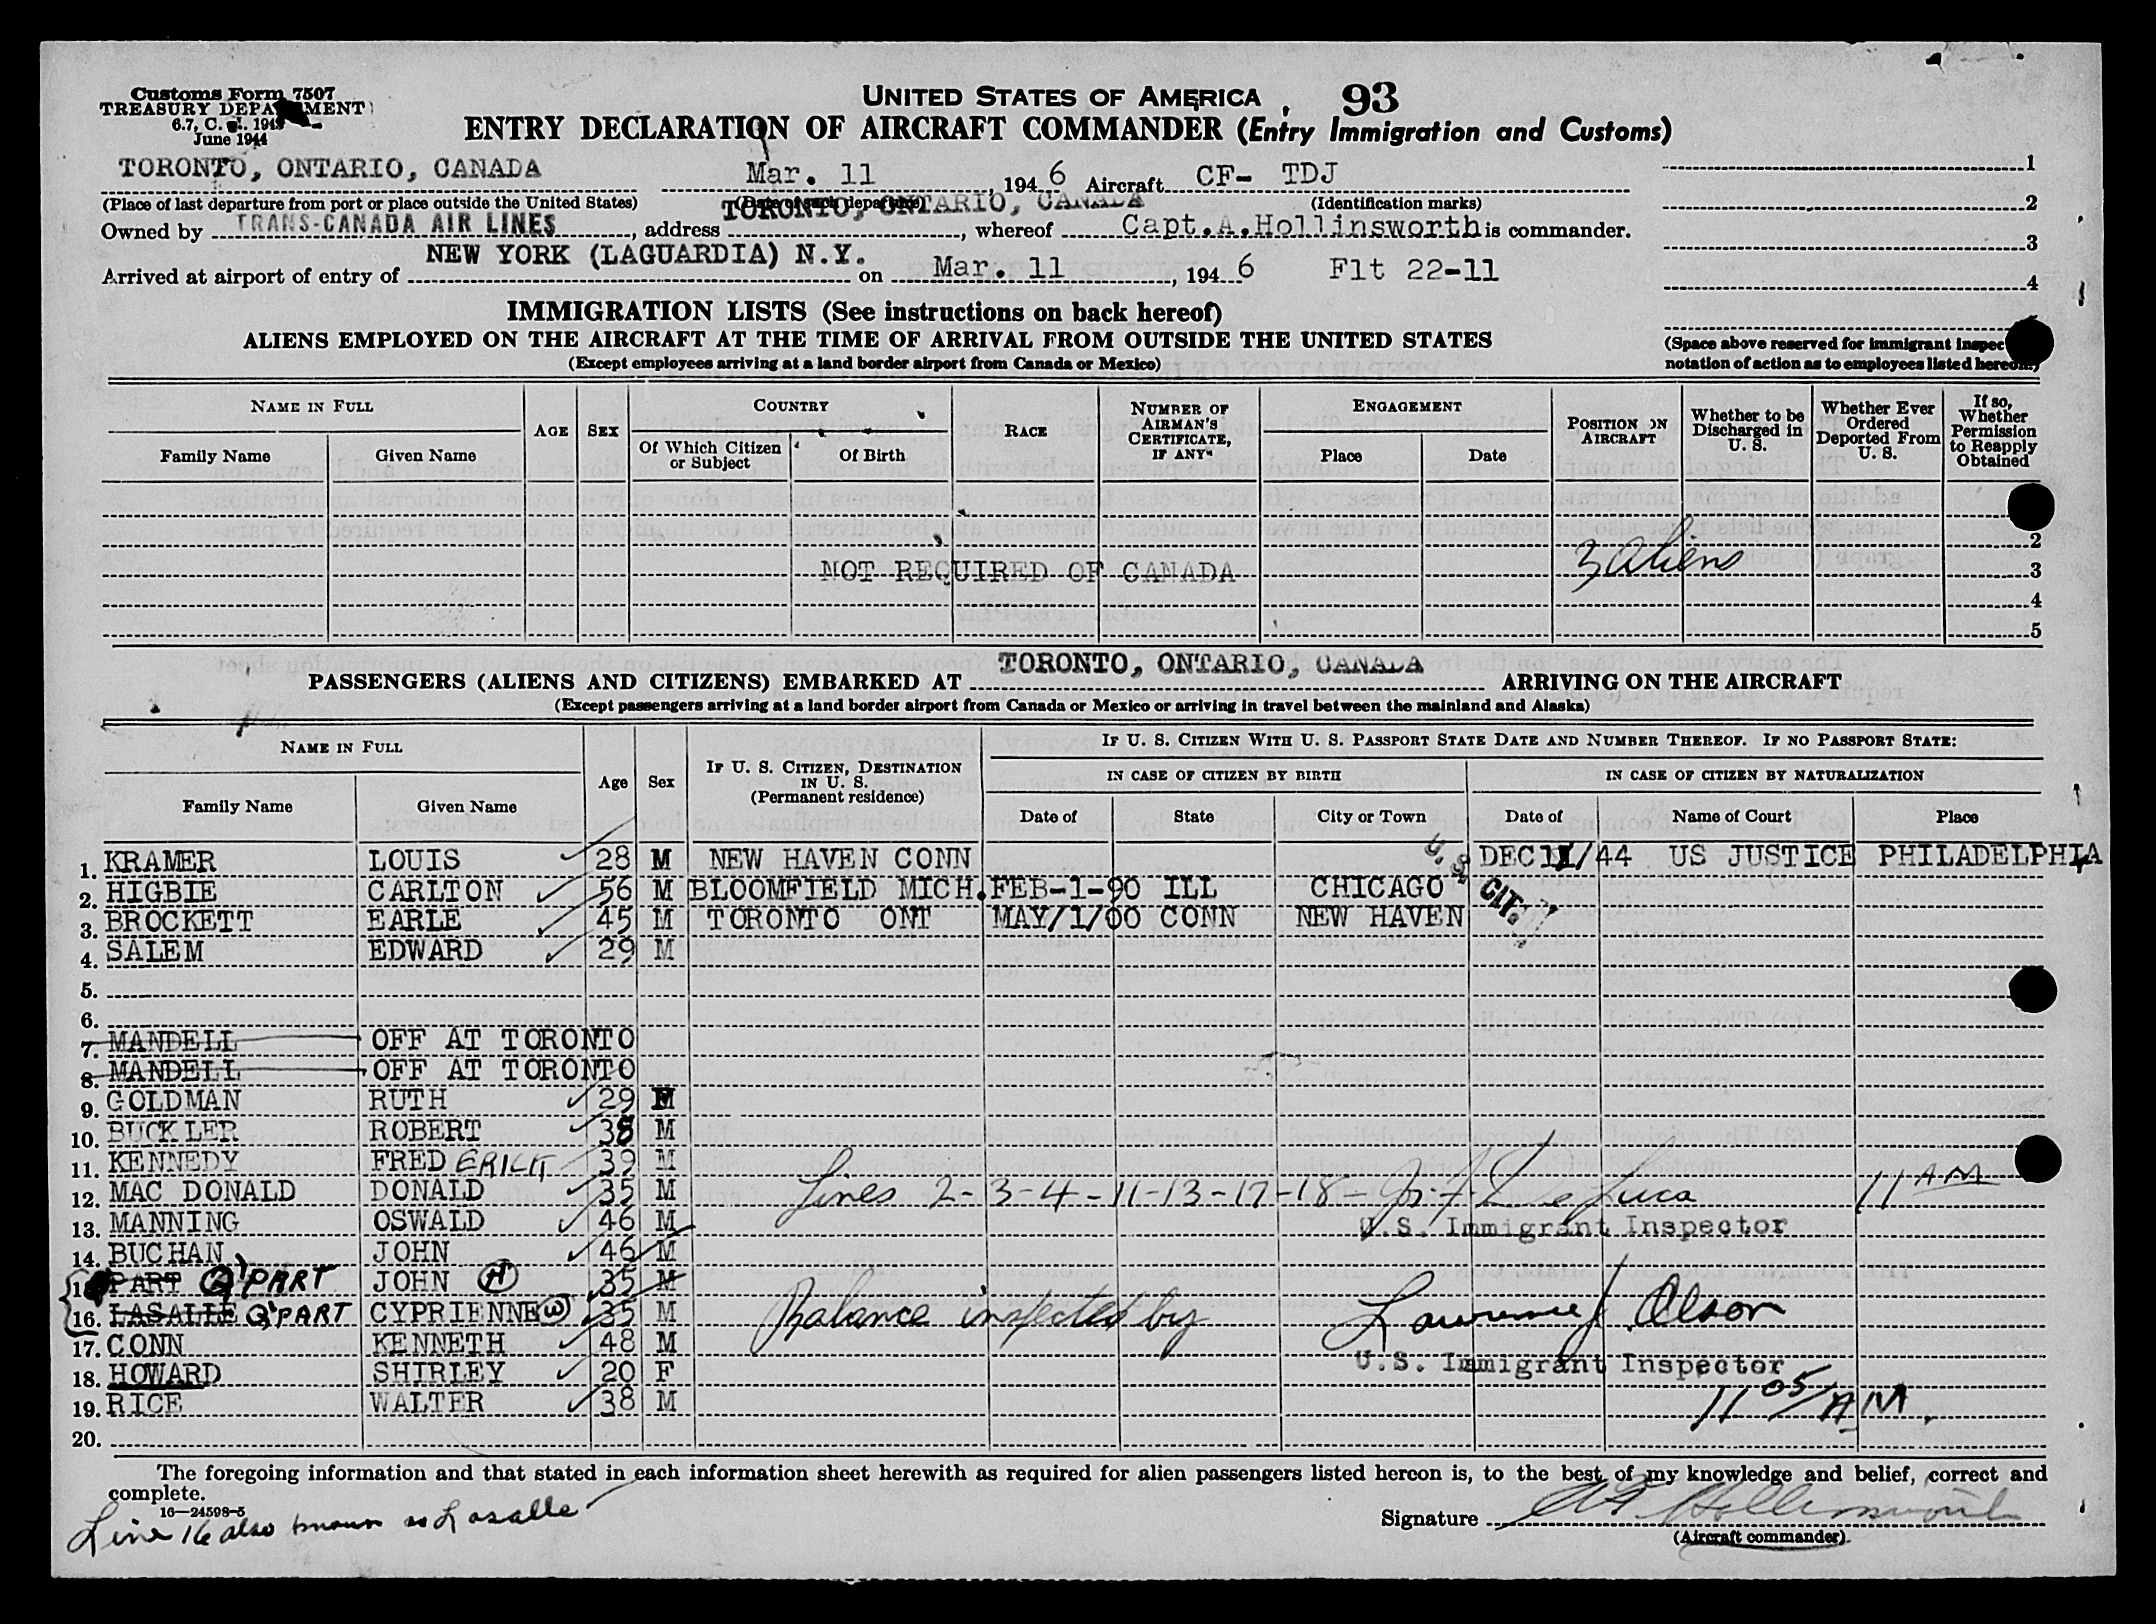 Customs Form 7507
TREASURY DEPARTMENT
June 1944
UNITED STATES OF AMERICA 93
ENTRY DECLARATION OF AIRCRAFT COMMANDER (Entry Immigration and Customs)
TORONTO, ONTARIO, CANADA Mar. 11, 1946 Aircraft CF- TDJ
(Place of last departure from port or place outside the United States) (Date of such departure) (Identification marks)
TORONTO, ONTARIO, CANADA
Owned by TRANS-CANADA AIR LINES, address, whereof Capt.A.Hollinsworth is commander.
Arrived at airport of entry of NEW YORK (LAGUARDIA) N.Y. on Mar. 11, 1946 Flt 22-11
1
2
3
4
IMMIGRATION LISTS (See instructions on back hereof)
ALIENS EMPLOYED ON THE AIRCRAFT AT THE TIME OF ARRIVAL FROM OUTSIDE THE UNITED STATES
(Except employees arriving at a land border airport from Canada or Mexico)
(Space above reserved for immigrant inspec
notation of action as to employees listed hereon.)
NAME IN FULL
Family Name Given Name
AGE SEX
COUNTRY
Of Which Citizen or Subject Of Birth
RACE
NUMBER OF AIRMAN'S CERTIFICATE, IF ANY
ENGAGEMENT
Place Date
POSITION ON AIRCRAFT
Whether to be Discharged in U. S.
Whether Ever Ordered Deported From U. S.
If so, Whether Permission to Reapply Obtained
2
NOT REQUIRED OF CANADA 3 Aliens 3
4
5
TORONTO, ONTARIO, CANADA
PASSENGERS (ALIENS AND CITIZENS) EMBARKED AT ARRIVING ON THE AIRCRAFT
(Except passengers arriving at a land border airport from Canada or Mexico or arriving in travel between the mainland and Alaska)
NAME IN FULL
Family Name Given Name
Age Sex
IF U. S. CITIZEN, DESTINATION IN U. S. (Permanent residence)
IF U. S. CITIZEN WITH U. S. PASSPORT STATE DATE AND NUMBER THEREOF. IF NO PASSPORT STATE:
IN CASE OF CITIZEN BY BIRTH IN CASE OF CITIZEN BY NATURALIZATION
Date of State City or Town Date of Name of Court Place
1. KRAMER LOUIS 28 M NEW HAVEN CONN DEC11/44 US JUSTICE PHILADELPHIA
2. HIGBIE CARLTON 56 M BLOOMFIELD MICH. FEB-1-90 ILL CHICAGO
U. S. CIT.
3. BROCKETT EARLE 45 M TORONTO ONT MAY/1/00 CONN NEW HAVEN
4. SALEM EDWARD 29 M
5.
6.
7. MANDELL OFF AT TORONTO
8. MANDELL OFF AT TORONTO
9. GOLDMAN RUTH 29 F
10. BUCKLER ROBERT 38 M
11. KENNEDY FREDERICK 39 M
12. MAC DONALD DONALD 35 M Lines 2-3-4-11-13-17-18- De Luca 11 AM
13. MANNING OSWALD 46 M U.S. Immigrant Inspector
14. BUCHAN JOHN 46 M
PART Q'PART JOHN (H) 35 M
16. LASALLE Q'PART CYPRIENNE (W) 35 M Balance inspected by Lawrence J. Olson
17. CONN KENNETH 48 M U.S. Immigrant Inspector
18. HOWARD SHIRLEY 20 F
19. RICE WALTER 38 M 11 05/AM.
20.
The foregoing information and that stated in each information sheet herewith as required for alien passengers listed hereon is, to the best of my knowledge and belief, correct and
complete.
16—24598-5
Line 16 also known as Lasalle
Signature A Hollinsworth
(Aircraft commander).